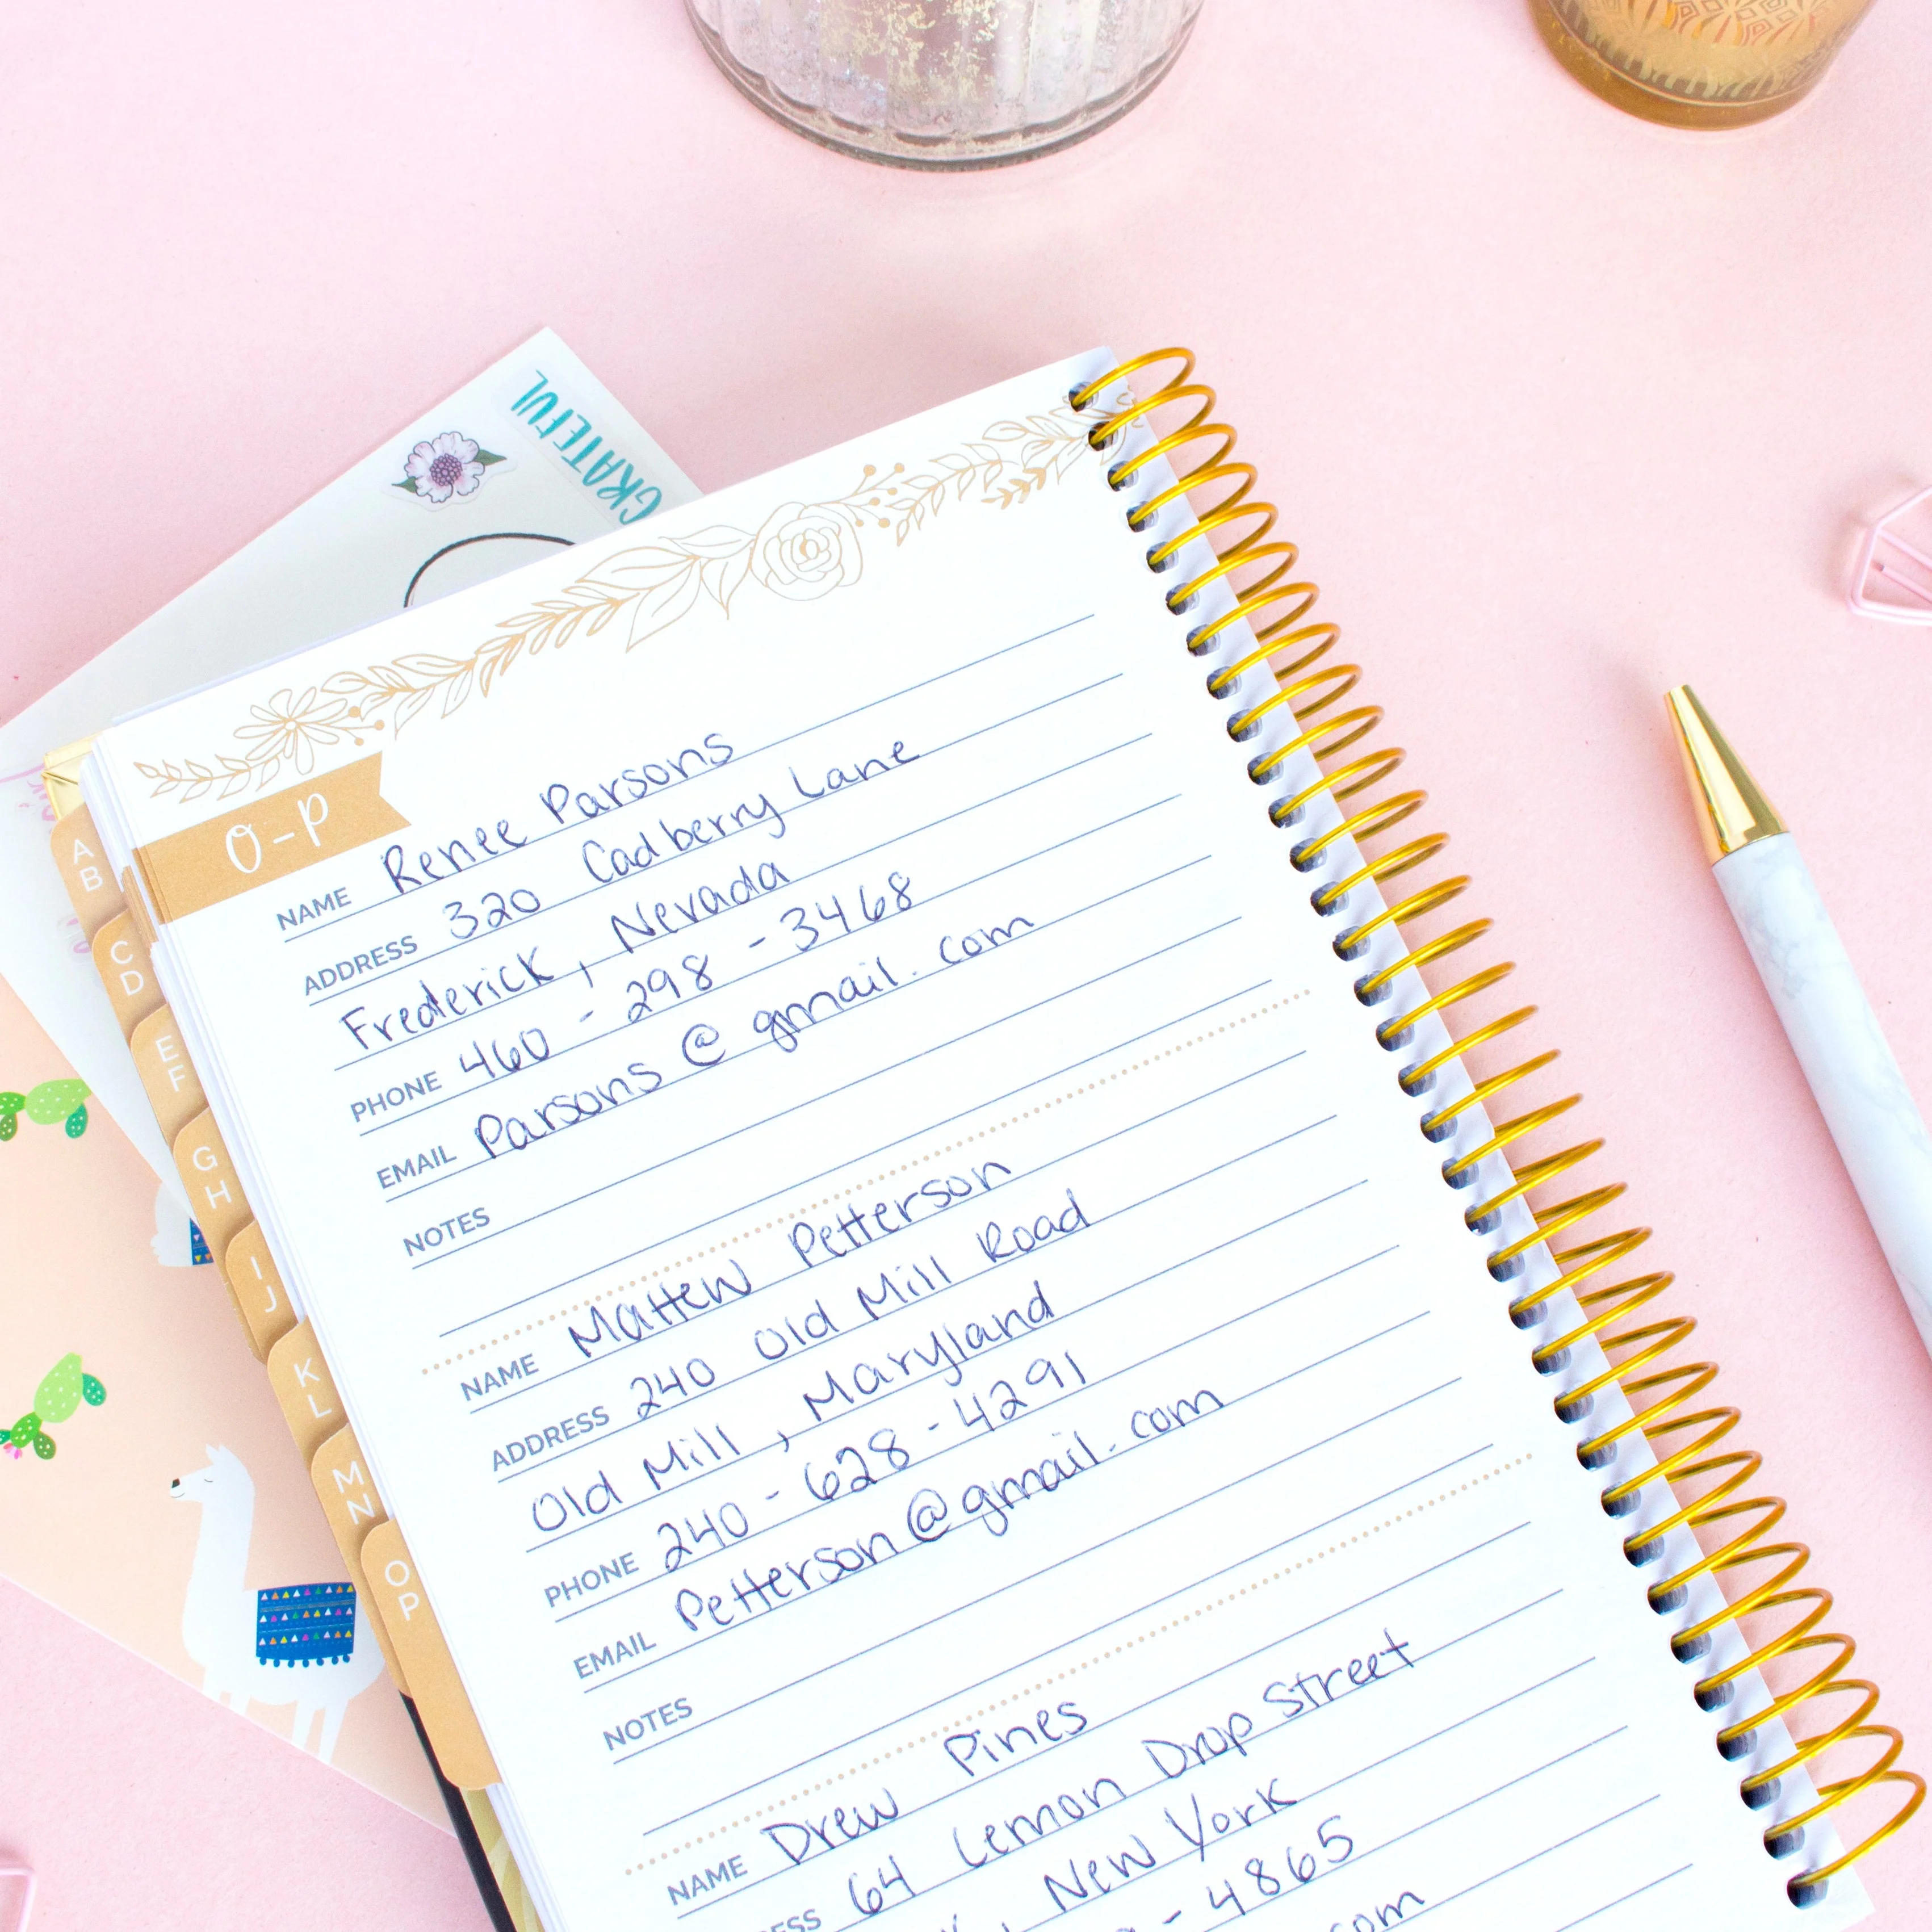 GRATEFUL
O-P
NAME Renee Parsons
ADDRESS 320 Cadberry Lane
Frederick, Nevada
PHONE 460-298-3468
EMAIL Parsons@gmail.com
NOTES
NAME Mattew Petterson
ADDRESS 240 Old Mill Road
Old Mill, Maryland
PHONE 240-628-4291
EMAIL Petterson@gmail.com
NOTES
NAME Drew Pines
64 Lemon Drop Street
, New York
-4865
com
A
B
C
D
E
F
G
H
I
J
K
L
M
N
O
P